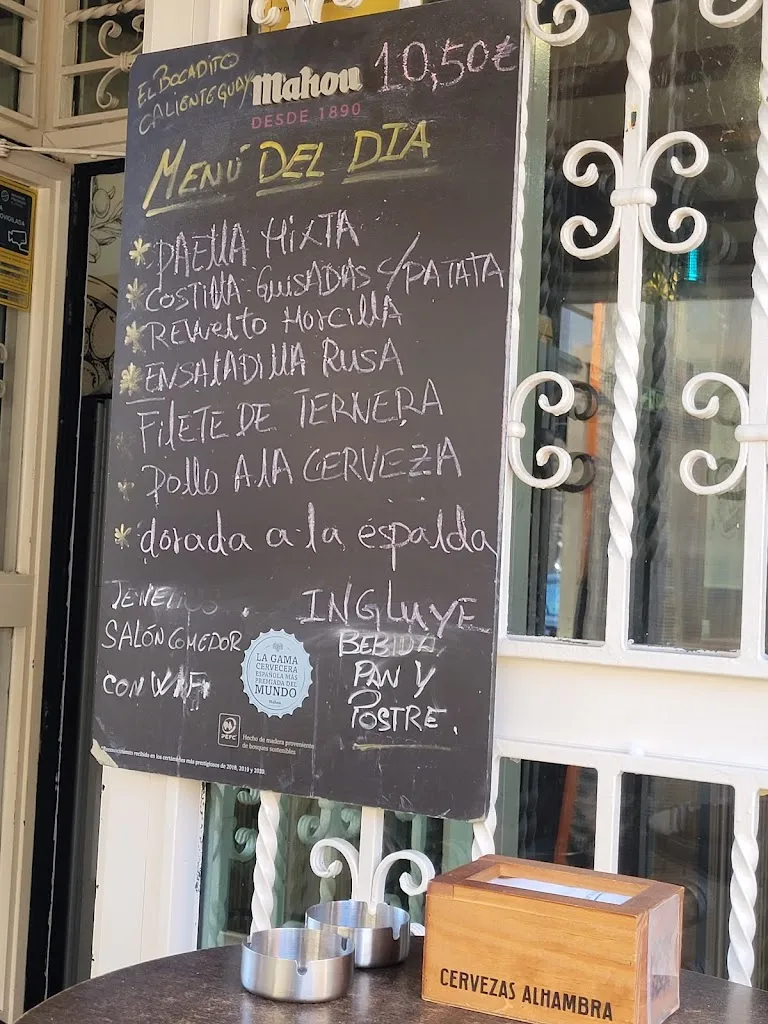 EL BOCADITO
CALIENTE GUAY
Mahou
DESDE 1890
10,50€
MENÚ DEL DIA
* PAELLA MIXTA
* COSTILLA GUISADAS C/PATATA
* REVUELTO MORCILLA
* ENSALADILLA RUSA
FILETE DE TERNERA
* POLLO A LA CERVEZA
* dorada a la espalda
TENEMOS
SALÓN COMEDOR
CON WIFI
INCLUYE
BEBIDA,
PAN Y
POSTRE.
LA GAMA
CERVECERA
ESPAÑOLA MÁS
PREMIADA DEL
MUNDO
Mahou
PEFC
Hecho de madera proveniente
de bosques sostenibles
*Reconocimiento recibido en los certámenes más prestigiosos de 2018, 2019 y 2020.
CERVEZAS ALHAMBRA